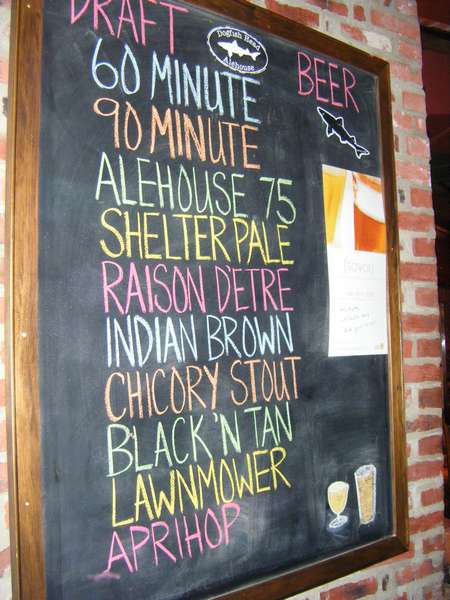 DRAFT
Dogfish Head
Alehouse
BEER
60 MINUTE
90 MINUTE
ALEHOUSE 75
SHELTER PALE
RAISON D'ETRE
INDIAN BROWN
CHICORY STOUT
BLACK 'N TAN
LAWNMOWER
APRIHOP